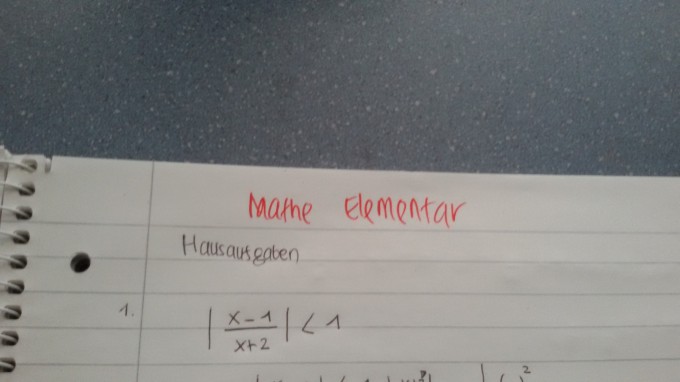 Mathe Elementar
Hausaufgaben
1. | x-1 / x+2 | < 1